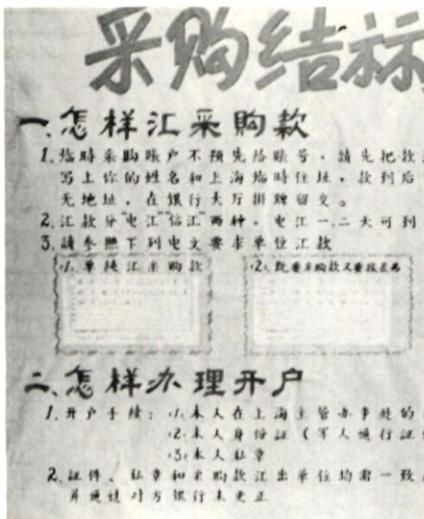 采购结标
一、怎样汇采购款
1. 临時采购账户不预先给账号，請先把款
写上你的姓名和上海临時住址，款到后
无地址，在银行大厅掛牌留交。
2. 汇款分“电汇”“信汇”两种，电汇一、二天可到
3. 請参照下列电文要求单位汇款
(1) 单纯汇采购款
(2) 既要采购款又要报差另
二、怎样办理开户
1. 开户手续： (1) 本人在上海主管办事处的
(2) 本人身份証（军人通行証
(3) 本人私章
2. 証件、私章和采购款汇出单位均需一致
并通过对方银行来更正